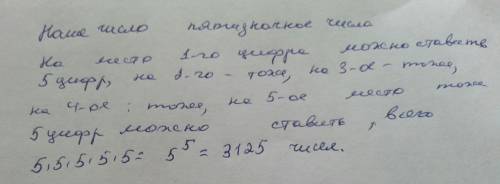 Наше число пятизначное число
на место 1-го цифра можно ставить
5 цифр, на 2-го - тоже, на 3-ое - тоже,
на 4-ое: тоже, на 5-ое место тоже
5 цифр можно ставить, всего
5·5·5·5·5 = 5⁵ = 3125 чисел.